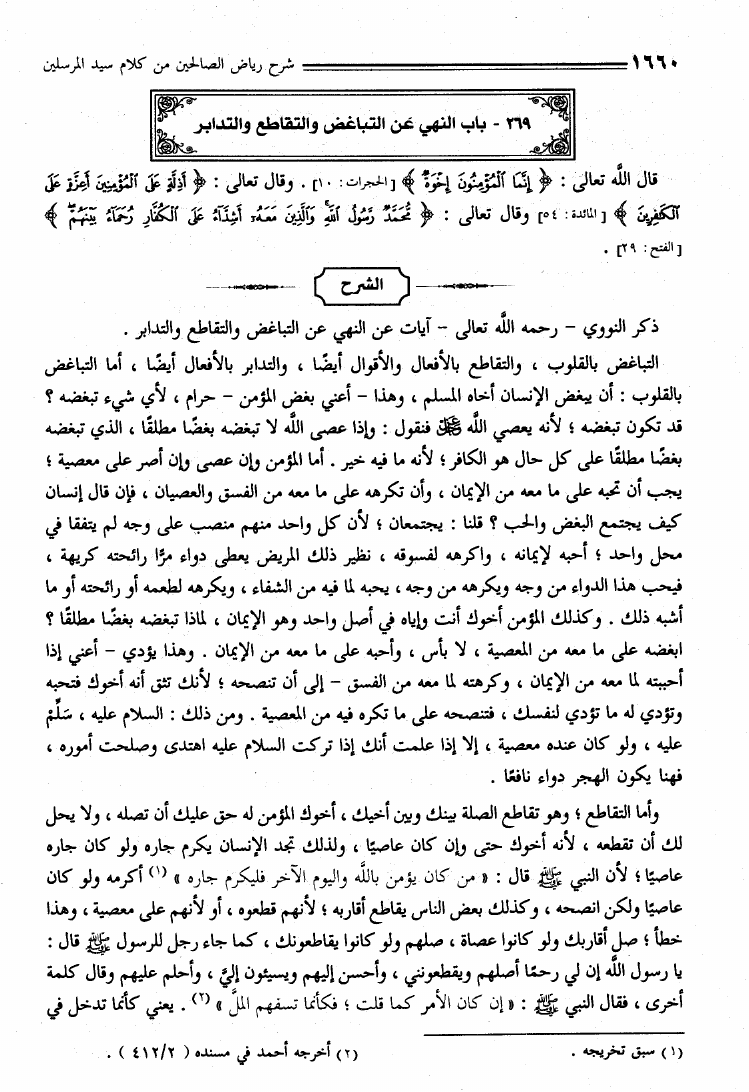 ١٦٦٠ شرح رياض الصالحين من كلام سيد المرسلين
٢٦٩ - باب النهي عن التباغض والتقاطع والتدابر
قال اللَّه تعالى : ﴿ إِنَّمَا الْمُؤْمِنُونَ إِخْوَةٌ ﴾ [الحجرات: ١٠] . وقال تعالى : ﴿ أَذِلَّةٍ عَلَى الْمُؤْمِنِينَ أَعِزَّةٍ عَلَى
الْكَافِرِينَ ﴾ [المائدة: ٥٤] وقال تعالى : ﴿ مُحَمَّدٌ رَسُولُ اللَّهِ وَالَّذِينَ مَعَهُ أَشِدَّاءُ عَلَى الْكُفَّارِ رُحَمَاءُ بَيْنَهُمْ ﴾
[الفتح: ٢٩] .
الشرح
ذكر النووي - رحمه الله تعالى - آيات عن النهي عن التباغض والتقاطع والتدابر .
التباغض بالقلوب ، والتقاطع بالأفعال والأقوال أيضًا ، والتدابر بالأفعال أيضًا ، أما التباغض
بالقلوب : أن يبغض الإنسان أخاه المسلم ، وهذا - أعني بغض المؤمن - حرام ، لأي شيء تبغضه ؟
قد تكون تبغضه ؛ لأنه يعصي اللَّه ﷻ فنقول : وإذا عصى اللَّه لا تبغضه بغضًا مطلقًا ، الذي تبغضه
بغضًا مطلقًا على كل حال هو الكافر ؛ لأنه ما فيه خير . أما المؤمن وإن عصى وإن أصر على معصية ؛
يجب أن تحبه على ما معه من الإيمان ، وأن تكرهه على ما معه من الفسق والعصيان ، فإن قال إنسان
كيف يجتمع البغض والحب ؟ قلنا : يجتمعان ؛ لأن كل واحد منهم منصب على وجه لم يتفقا في
محل واحد ؛ أحبه لإيمانه ، واكرهه لفسوقه ، نظير ذلك المريض يعطى دواء مرًّا رائحته كريهة ،
فيحب هذا الدواء من وجه ويكرهه من وجه ، يحبه لما فيه من الشفاء ، ويكرهه لطعمه أو رائحته أو ما
أشبه ذلك . وكذلك المؤمن أخوك أنت وإياه في أصل واحد وهو الإيمان ، لماذا تبغضه بغضًا مطلقًا ؟
ابغضه على ما معه من المعصية ، لا بأس ، وأحبه على ما معه من الإيمان . وهذا يؤدي - أعني إذا
أحببته لما معه من الإيمان ، وكرهته لما معه من الفسق - إلى أن تنصحه ؛ لأنك تثق أنه أخوك فتحبه
وتؤدي له ما تؤدي لنفسك ، فتنصحه على ما تكره فيه من المعصية . ومن ذلك : السلام عليه ، سَلِّمْ
عليه ، ولو كان عنده معصية ، إلا إذا علمت أنك إذا تركت السلام عليه اهتدى وصلحت أموره ،
فهنا يكون الهجر دواء نافعًا .
وأما التقاطع ؛ وهو تقاطع الصلة بينك وبين أخيك ، أخوك المؤمن له حق عليك أن تصله ، ولا يحل
لك أن تقطعه ، لأنه أخوك حتى وإن كان عاصيًا ، ولذلك تجد الإنسان يكرم جاره ولو كان جاره
عاصيًا ؛ لأن النبي ﷺ قال : « من كان يؤمن باللَّه واليوم الآخر فليكرم جاره » (١) أكرمه ولو كان
عاصيًا ولكن انصحه ، وكذلك بعض الناس يقاطع أقاربه ؛ لأنهم قطعوه ، أو لأنهم على معصية ، وهذا
خطأ ؛ صل أقاربك ولو كانوا عصاة ، صلهم ولو كانوا يقاطعونك ، كما جاء رجل للرسول ﷺ قال :
يا رسول اللَّه إن لي رحمًا أصلهم ويقطعونني ، وأحسن إليهم ويسيئون إليَّ ، وأحلم عليهم وقال كلمة
أخرى ، فقال النبي ﷺ : « إن كان الأمر كما قلت ؛ فكأنما تسفهم الملَّ » (٢) . يعني كأنما تدخل في
(١) سبق تخريجه . (٢) أخرجه أحمد في مسنده ( ٤١٢/٢ ) .